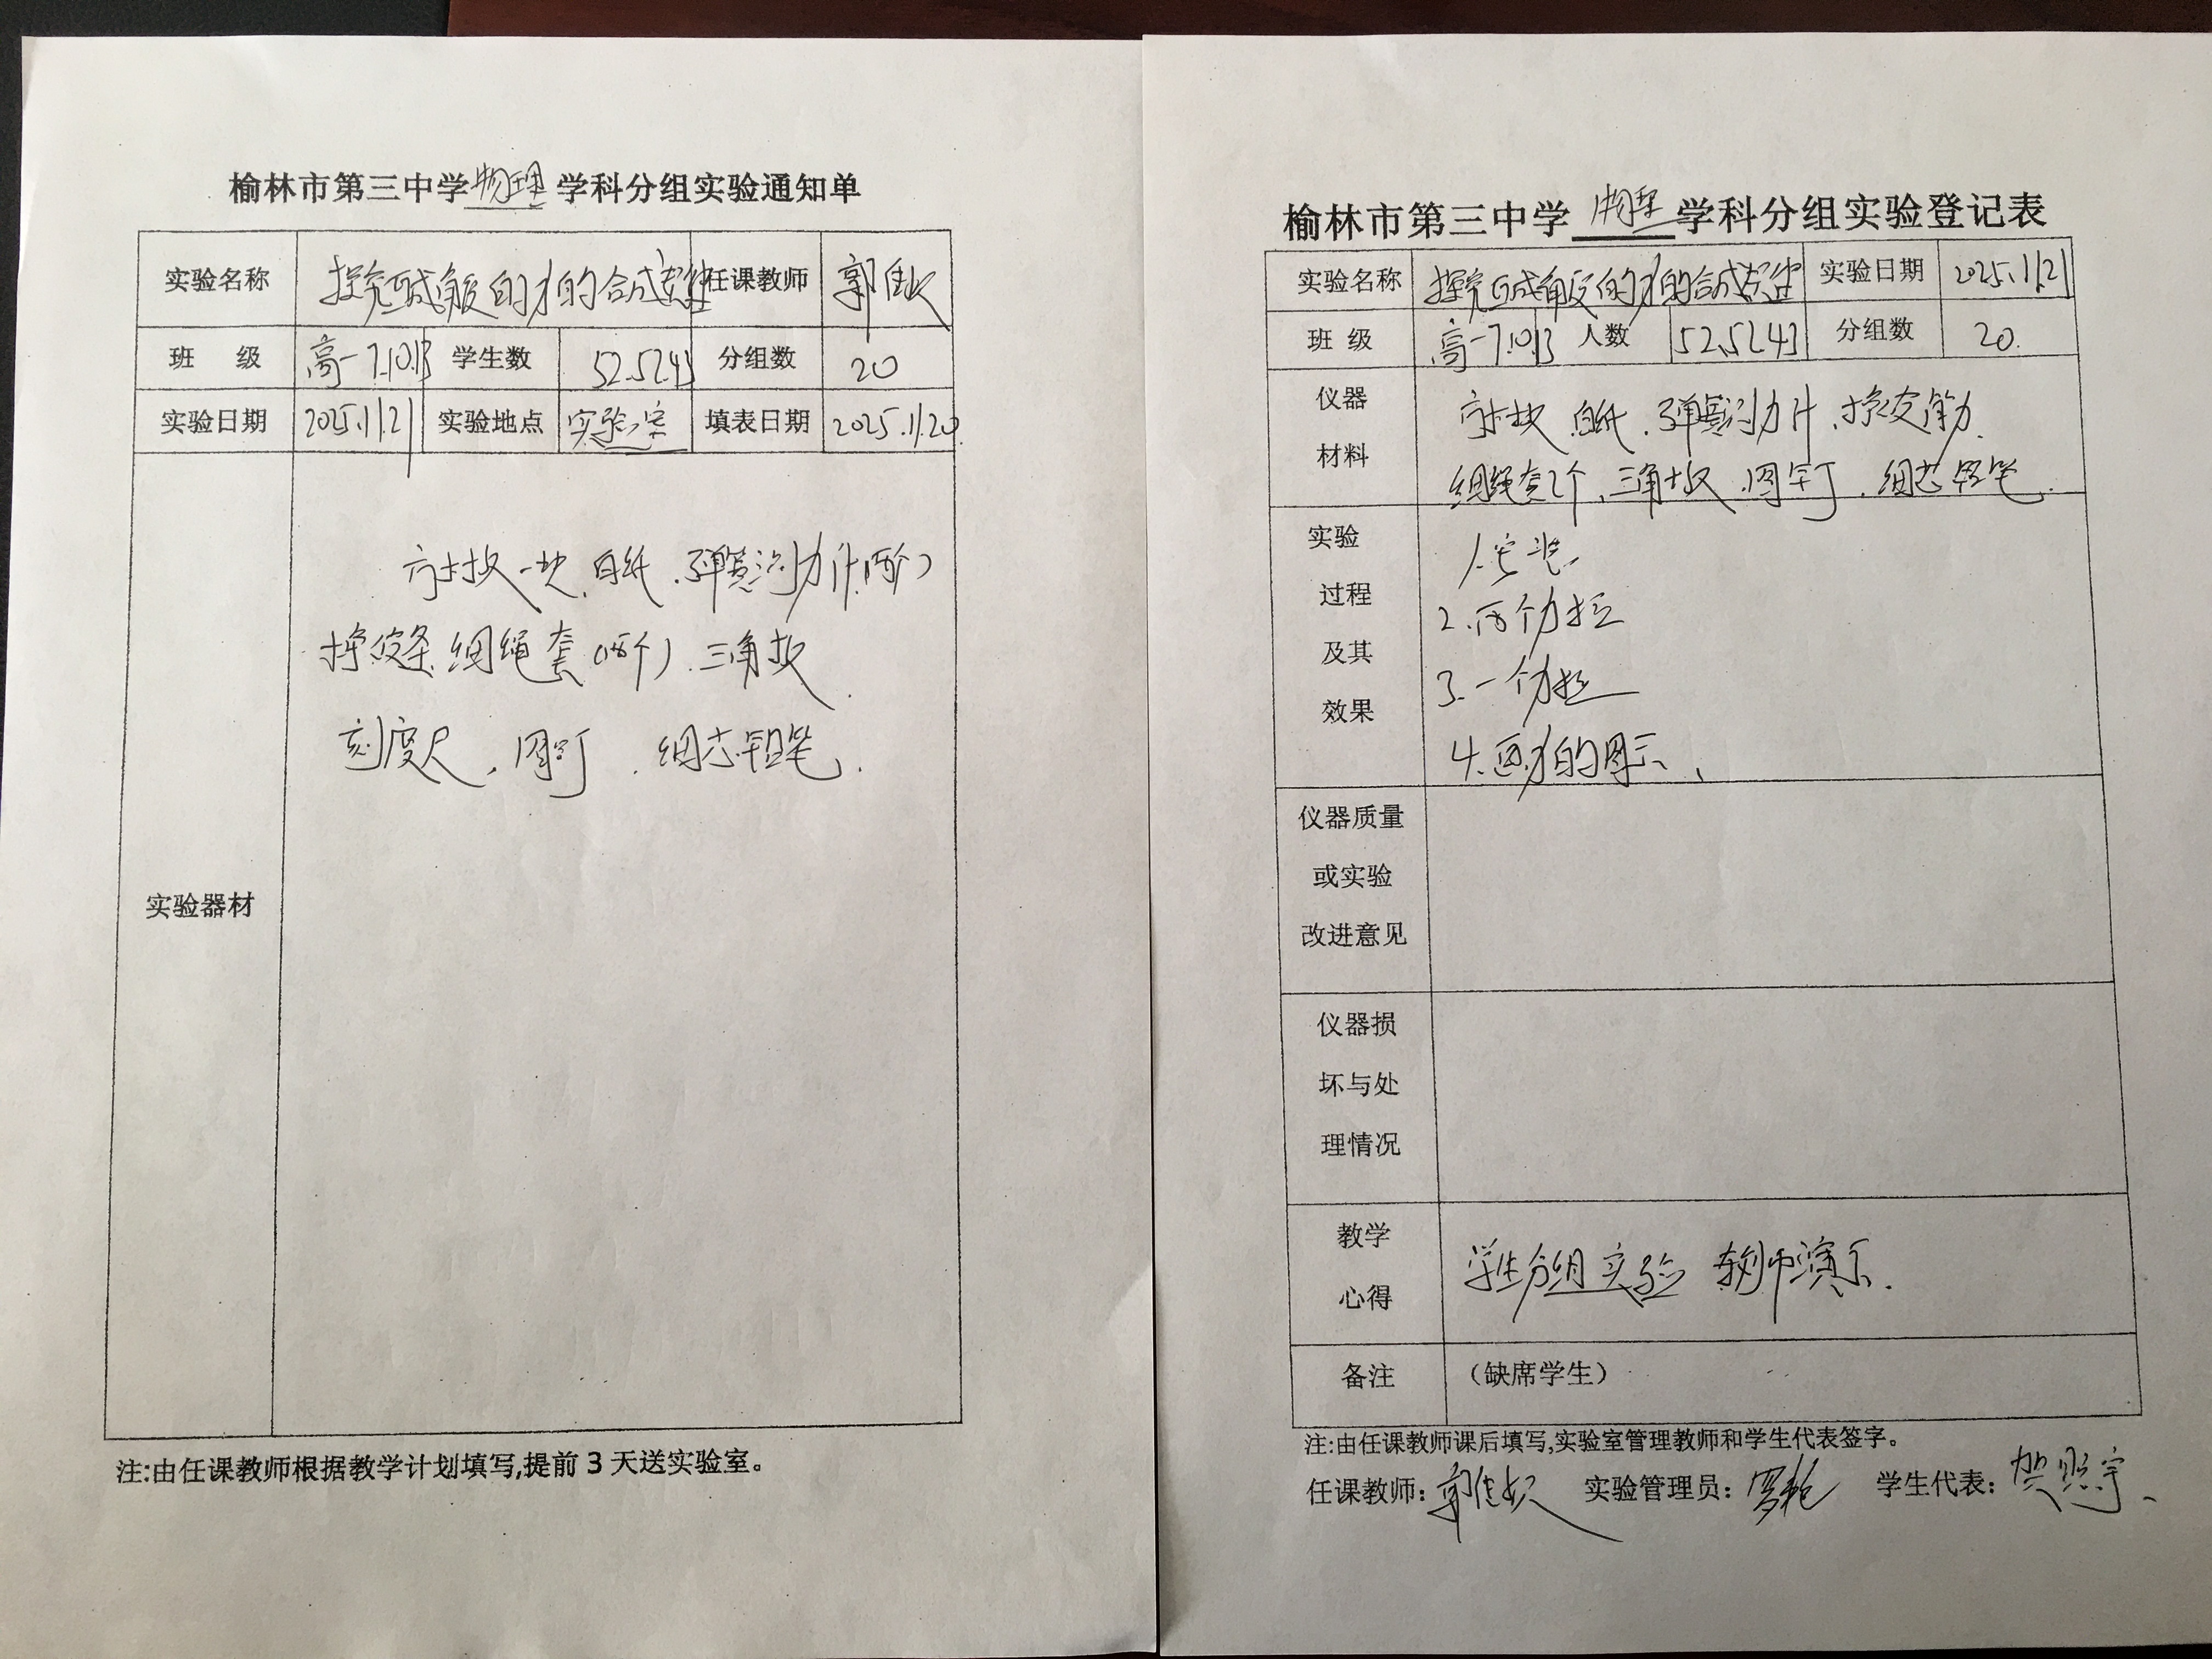 榆林市第三中学物理学科分组实验通知单
实验名称 探究互成角度的力的合成规律 任课教师 郭佳
班 级 高一7.10.13 学生数 52.52.43 分组数 20
实验日期 2025.11.21 实验地点 实验室 填表日期 2025.11.20.
实验器材
方木板一块、白纸、弹簧测力计(两个)
橡皮条、细绳套(两个)、三角板、
刻度尺、图钉、细芯铅笔.
注:由任课教师根据教学计划填写,提前3天送实验室。
榆林市第三中学物理学科分组实验登记表
实验名称 探究互成角度的力的合成规律 实验日期 2025.11.21
班 级 高一7.10.13 人数 52.52.43 分组数 20.
仪器
材料
方木板、白纸、弹簧测力计、橡皮筋、
细绳套2个、三角板、图钉、细芯铅笔.
实验
过程
及其
效果
1.安装、
2.两个力拉
3.一个力拉
4.画力的图示、
仪器质量
或实验
改进意见
仪器损
坏与处
理情况
教学
心得
学生分组实验 教师演示.
备注 （缺席学生）
注:由任课教师课后填写,实验室管理教师和学生代表签字。
任课教师: 郭佳 实验管理员: 罗艳 学生代表: 贺熙宇